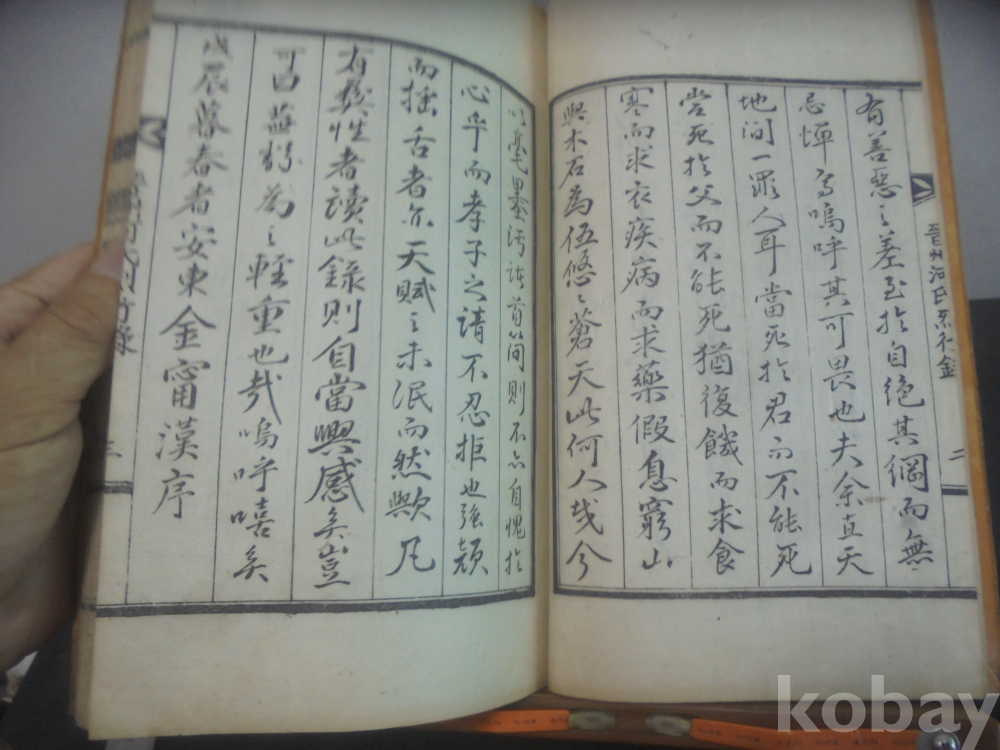 有善惡之差至於自絶其綱而無
忌憚焉嗚呼其可畏也夫余直天
地間一罪人耳當死於君而不能死
當死於父而不能死猶復饑而求食
寒而求衣疾病而求藥假息窮山
與木石為伍悠〻蒼天此何人哉今
以毫墨汚諸首簡則不亦自愧於
心乎而孝子之請不忍拒也強顔
而搖舌者亦天賦之未泯而然歟凡
有彛性者讀此錄則自當興感矣豈
可曰為之輕重也哉嗚呼嘻矣
戊辰暮春者安東金甯漢序
晋州河氏
二
三
kobay